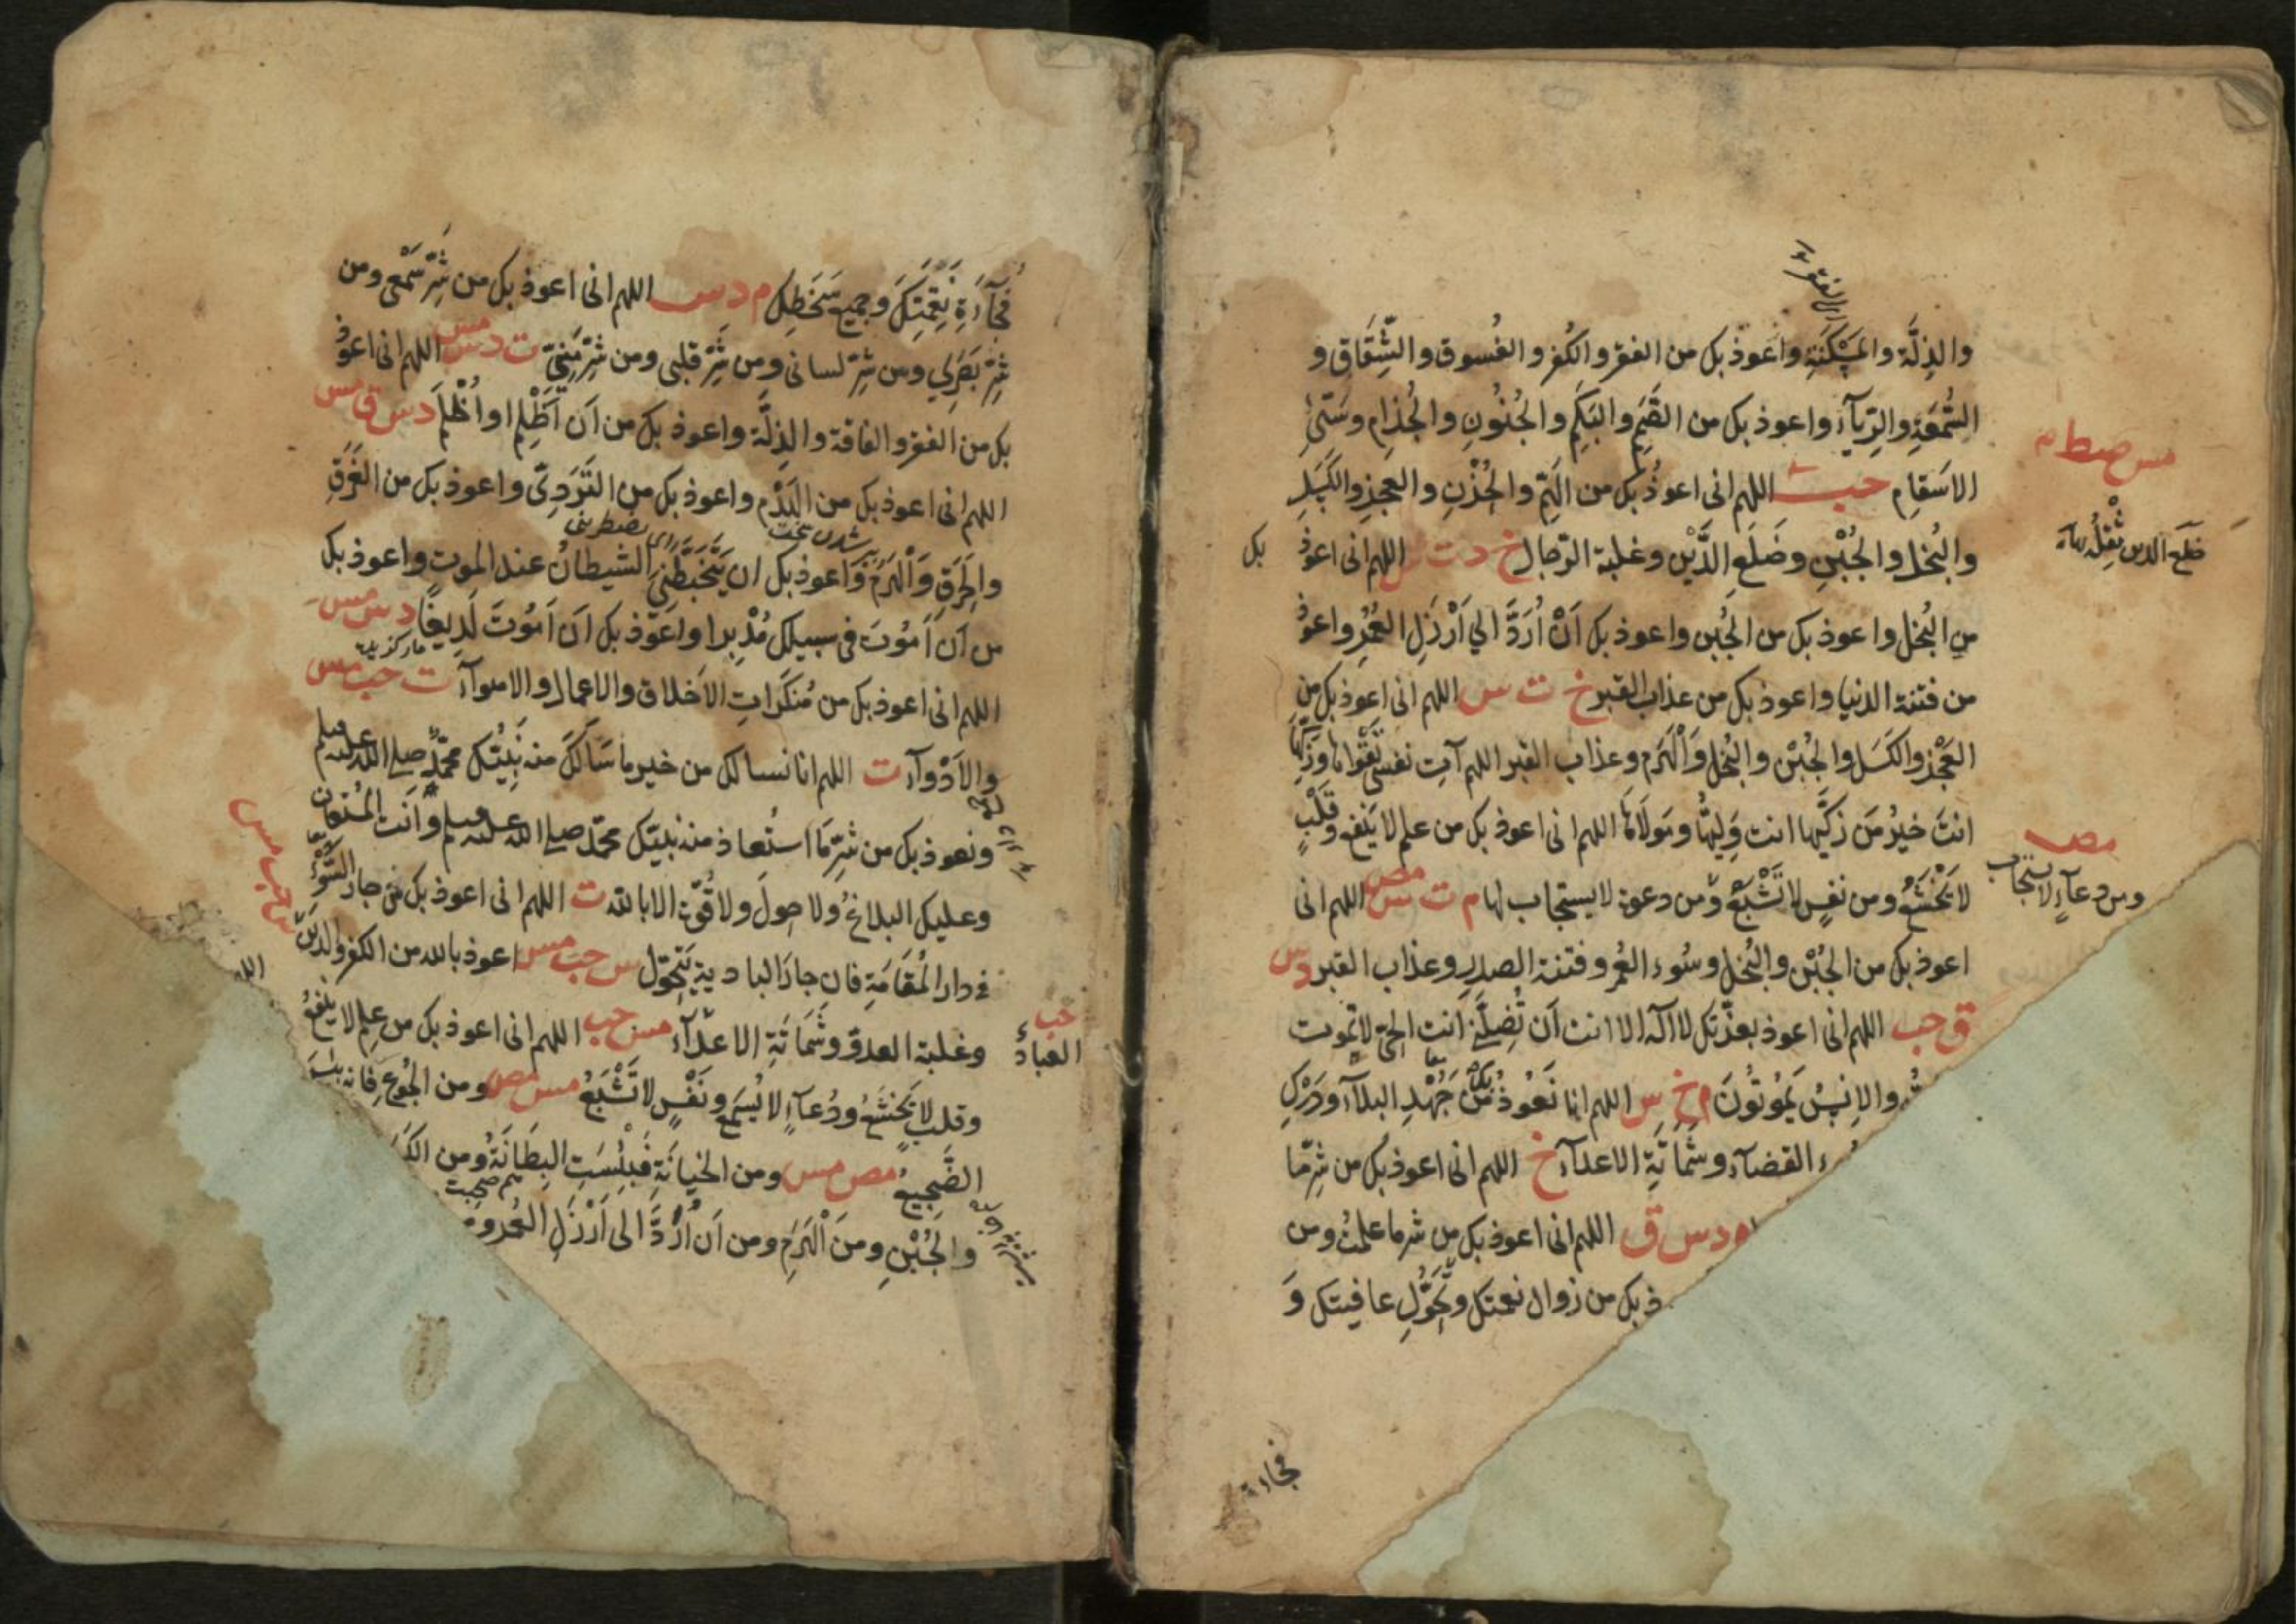 والذِلَّة والمَسْكَنَةِ واعوذ بك من الفقر والكُفر والفُسوق والشِّقَاقِ و
السُّمعَةِ والرِّيَآءِ واعوذ بك من الصَّمَمِ والبَكَمِ والجُنُونِ والجُذامِ وسَيّئِ
مس صط
الاَسقَامِ حب اللهم انى اعوذُ بك من الهَمِّ والحُزْنِ والعجزِ والكَسَلِ
والبُخل والجُبْنِ وضَلَعِ الدَّيْنِ وغلبة الرّجال خ د ت س اللهم انى اعوذ بك
ضلع الدين ثِقْلُه
مِن البُخل واعوذ بك من الجُبن واعوذ بك اَنْ اُرَدَّ الي اَرْذَلِ العُمُرِ واعوذ
من فتنة الدنيا واعوذ بك من عذاب القبر خ ت س اللهم انى اعوذ بك من
العَجْز والكَسَل والجُبْن والبُخل وَالْهَرَم وعذاب القبر اللهم آتِ نفسى تَقْوَاهَا وَزَكِّهَا
انتَ خيرُ مَن زَكّٰيها انت وَلِيُّها ومَولَاهَا اللهم انى اعوذ بك من علم لا ينفع وقَلْبٍ
مص
لا يَخْشَعُ ومن نفسٍ لا تَشْبَعُ ومن دعوة لا يستجاب لها م ت س مص اللهم انى
ومن دعآءٍ لا يستجاب
اعوذ بك من الجُبْن والبُخل وسُوء العُمُر وفتنة الصدر وعذاب القبر د س
ق حب اللهم انى اعوذ بعزّتك لا اله الا انت اَن تُضِلَّنِى اَنت الحَىّ لا تموت
والاِنسُ يَمُوتُونَ م خ س اللهم انا نَعُوذُ بك مِنْ جَهْدِ البلآء ودَرْكِ
القضآء وشَمَاتَةِ الاعدآء خ اللهم انى اعوذ بك من شرّ ما
م د س ق اللهم انى اعوذ بك من شر ما علمتُ ومن
ذ بك من زوال نعمتك وتَحَوُّلِ عافيتك وَ
فجاءة
فُجَآءَةِ نِقْمَتِكَ وجميع سَخَطِك م د س اللهم انى اعوذ بك من شَرِّ سَمْعِى ومن
شرّ بَصَرِي ومن شرّ لسانى ومن شَرّ قلبى ومن شَرِّ مَنِيِّى ت د س مس اللهم انى اعوذ
بك من الفقر والفاقة والذِلَّة واعوذ بك من اَن اَظْلِمَ او اُظْلَمَ د س ق مس
اللهم انى اعوذ بك من الهَدْمِ واعوذ بك من التَّرَدِّى واعوذ بك من الغَرَقِ
والحَرَقِ وَالْهَرَمِ وَاعوذ بك ان يَتَخَبَّطَنِىَ الشيطانُ عند الموت واعوذ بك
من اَن اَمُوتَ فى سبيلك مُدْبِرا واعوذ بك اَن اَمُوتَ لَدِيغًا د س مس
اللهم انى اعوذ بك من مُنكَرَاتِ الاَخلاق والاعمال والاهوآء ت حب مس
والاَدْوَآء ت اللهم انا نسالك من خير ما سَاَلَكَ منه نَبِيُّك محمّدٌ صلى الله عليه وسلم
ونعوذ بك من شرّ مَا استَعاذ منه نبيّك محمّد صلى الله عليه وسلم وَانت المُستعان
وعليك البلاغُ ولا حولَ ولا قُوّة الا بالله ت اللهم انى اعوذ بك من جار السَّوْء
فى دار المُقَامَةِ فان جارَ البادية يَتَحَوَّل س حب مس اعوذ بالله من الكفر والدَّين
س حب مس
وغلبة العدوّ وشَمَاتَةِ الاعدآء مس حب اللهم انى اعوذ بك من عِلم لا ينفعُ
حب
العبادِ
وقلب لا يَخشَعُ ودُعآءٍ لا يُسمَع ونَفْسٍ لا تَشْبَعُ مس مص ومن الجُوعِ فانه بئسَ
الضَّجِيعُ مص مس ومن الخِيانَةِ فَبِئْسَتِ البِطَانَةُ ومن الكَسَ
والجُبْنِ ومنَ الْهَرَمِ ومن اَن اُرَدَّ الى اَرْذَلِ العُمُر وم